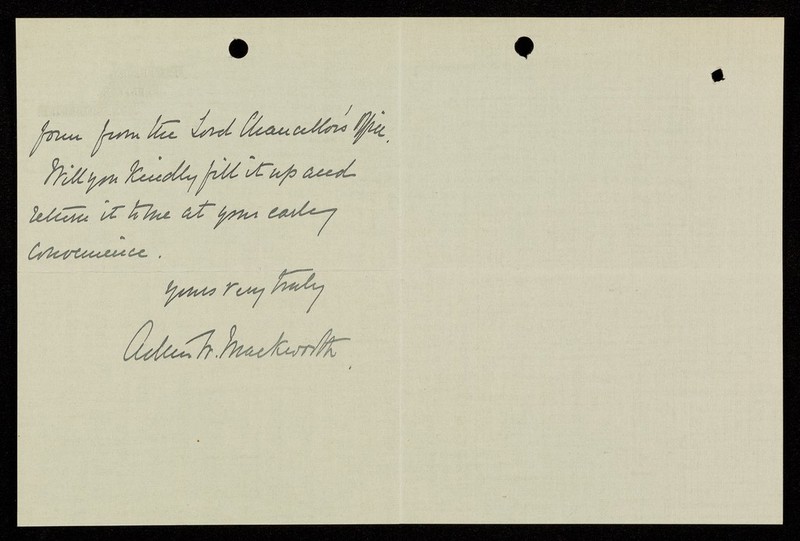 form from the Lord Chancellor's Office.
Will you Kindly fill it up and
return it to me at your early
convenience.
yours very truly
W. Mackworth.